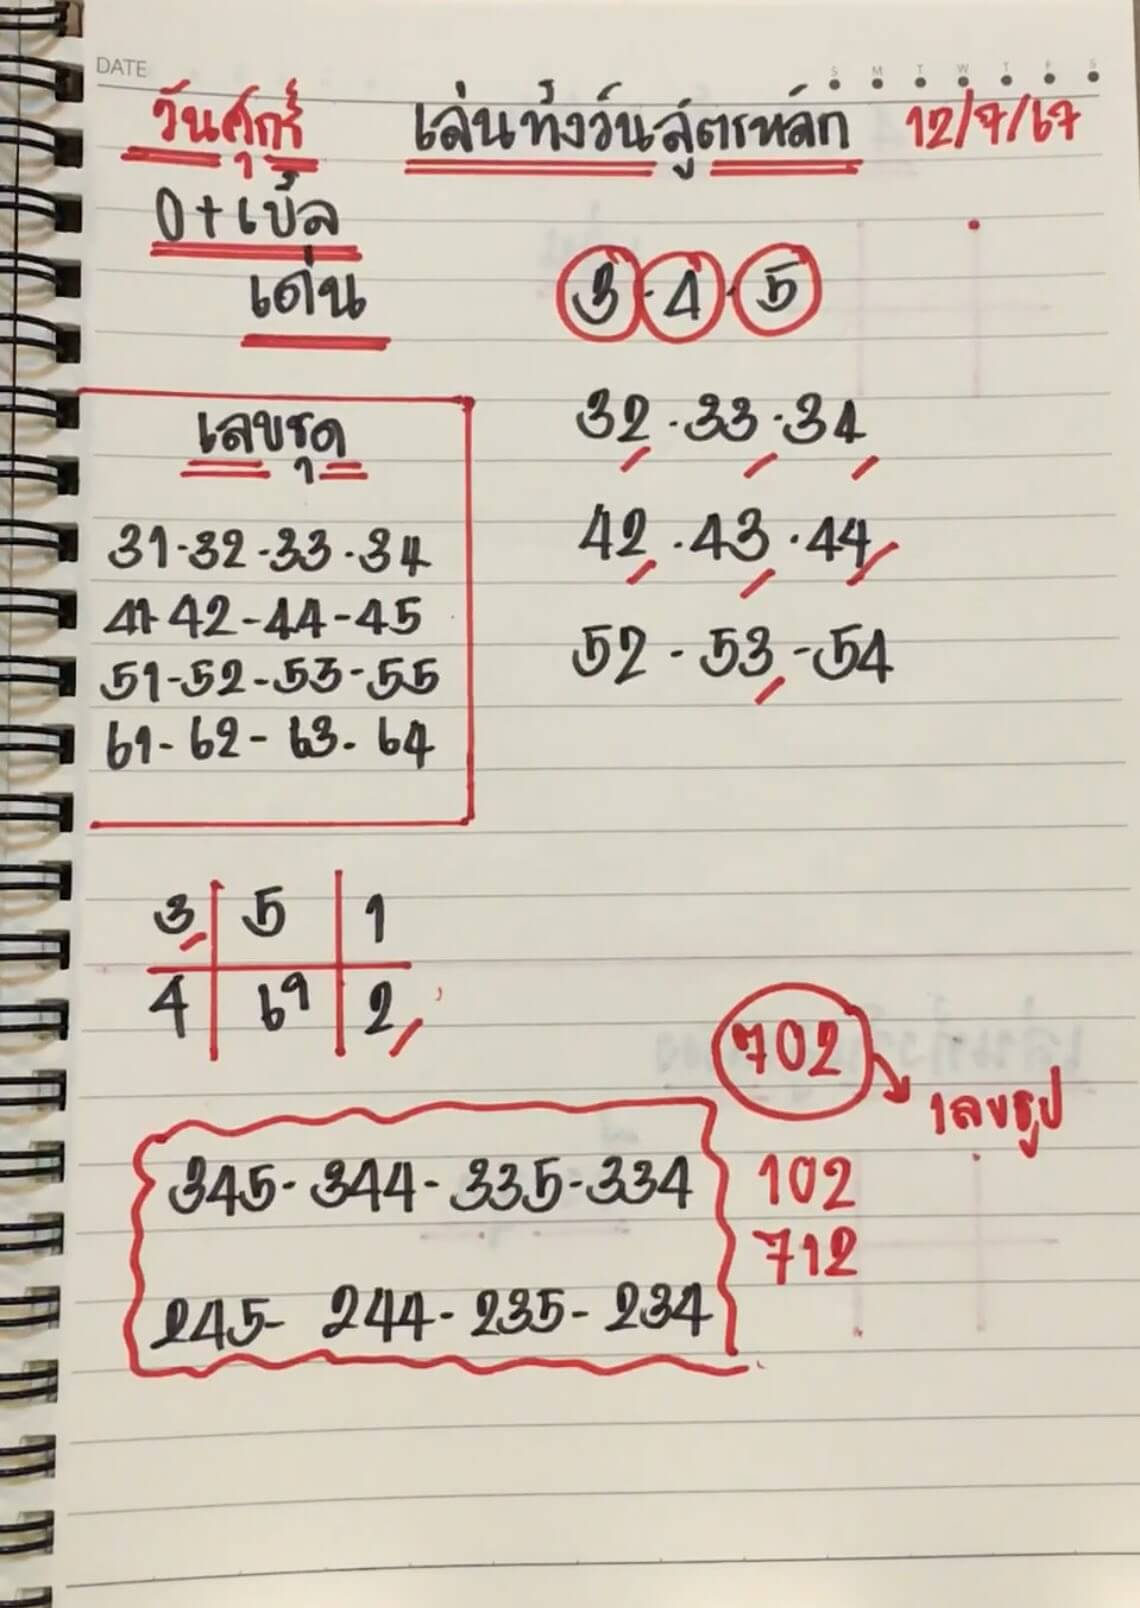 DATE
S M T W T F S
วันศุกร์ เล่นทั้งวันสูตรหลัก 12/7/67
0+เบิ้ล
เด่น 3.4.5
เลขชุด
31-32-33-34
41-42-44-45
51-52-53-55
61-62-63-64
32.33.34
42.43.44
52-53-54
3 5 1
4 69 2
702
เลขธูป
102
712
345-344-335-334
245-244-235-234